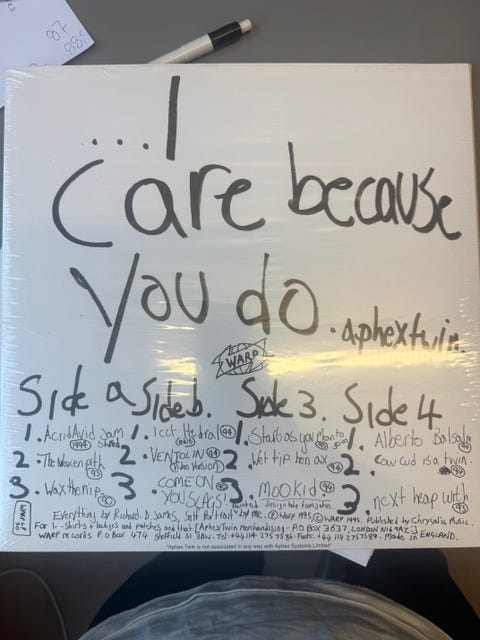 ...I
Care because
you do. aphextwin.
WARP
Side a
1. AcridAvid Jam Shred 94
2. The Waxen pith 93
3. Wax the nip 90
Side b.
1. Icct Hedral 94 (edit)
2. VENTOLIN 94 (Video Version)
3. COME ON YOU SLAGS!
Side 3.
1. Start as you Mean to go on
2. Wet tip hen ax 94
3. Mookid 94
Side 4
1. Alberto Balsalm
2. Cow Cud is a twin.
3. next heap with. 93
Everything by Richard D. James, Self Portrait painted by me. Design help from John. Ⓟ Warp 1995, © WARP 1995. Published by Chrysalis Music.
For t-shirts + badges and patches and that [Aphex Twin Merchandising - PO BOX 3637, LONDON N16 9AZ]
WARP records P O BOX 474 Sheffield S1 3BW. Tel: +44 114 275 7586 Facts: +44 114 2757589. Made in ENGLAND.
"Aphex Twin is not associated in any way with Aphex Systems Limited"